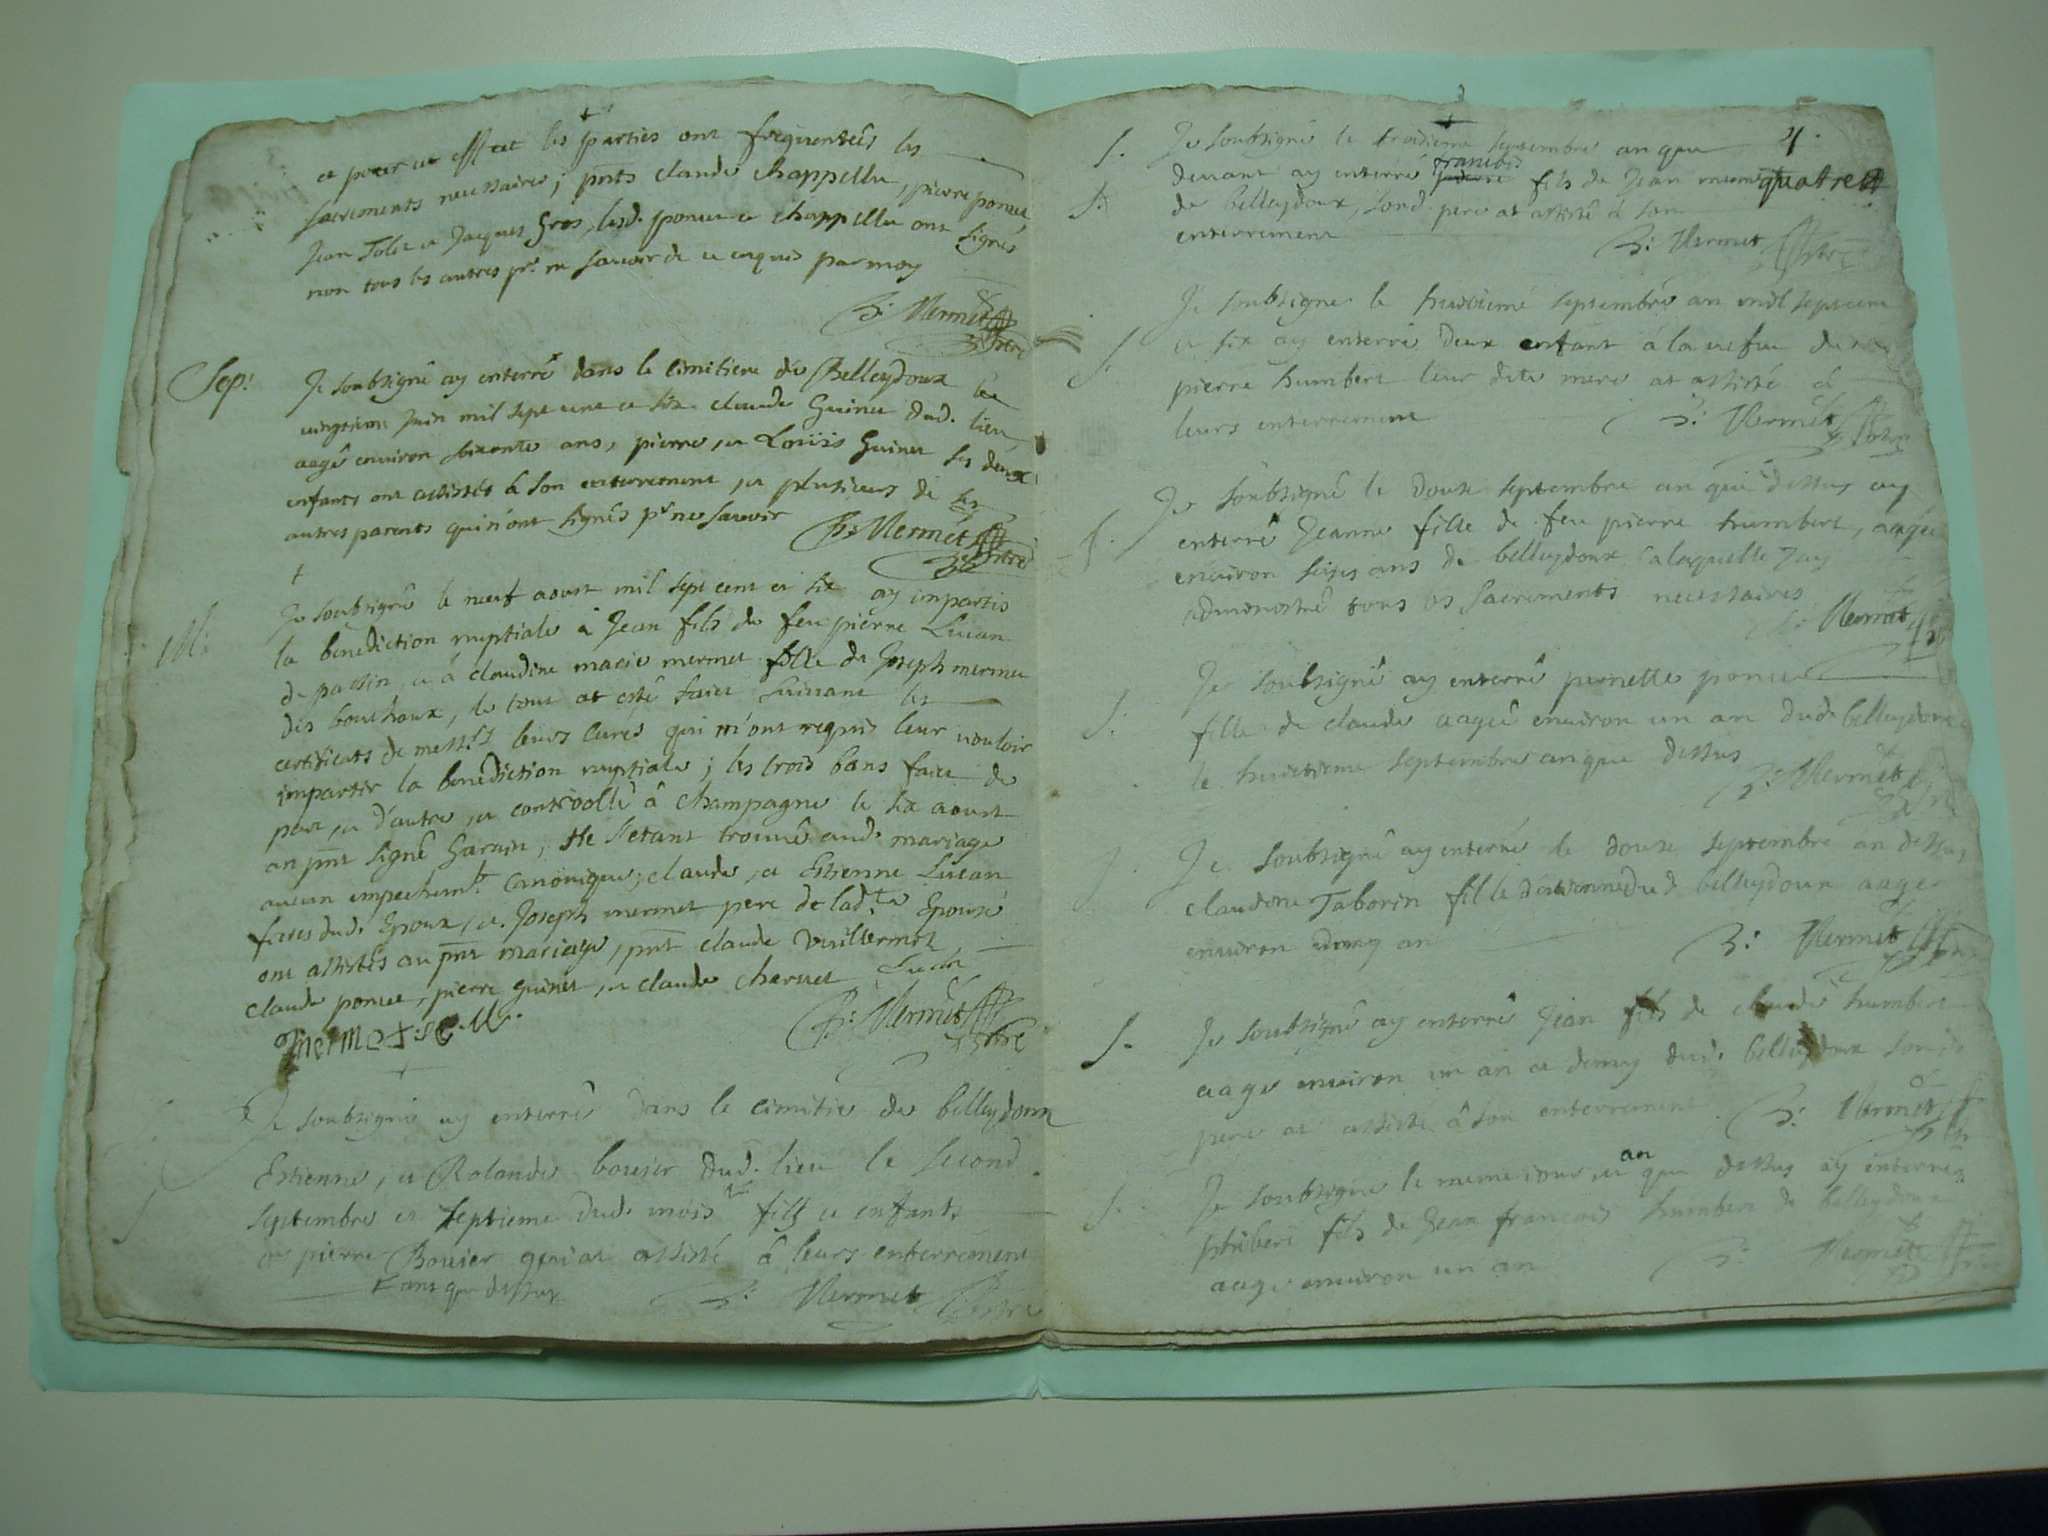 et pour cet effect les parties ont frequentées les
sacrements necessaires, pnts claude chappellu, pierre poncet
Jean Tolet et Jacques Gros, lesd. poncet et chappellu ont signés
non tous les autres pr. ne savoir de ce enquis par moy
B: Mermet ptre
Sep: Je soubsigné ay enterré dans le cimitiere de Belleydoux le
vingtieme juin mil sept cent et six claude Guinet dud. lieu
aagé environ soixante ans, pierre, et Louiis Guinet ses deux
enfants ont assistés à son enterrement, et plusieurs de ses
autres parents qui n'ont signés pr ne savoir
B: Mermet ptre
M: Je soubsigné le neuf aoust mil sept cent et six ay impartis
la benediction nuptiale à Jean fils de feu pierre Lucan
de passin, et à claudine marie mermet fille de Joseph mermet
des bouchoux, le tout at esté faict suivant les
certificats de mess.rs leurs curés qui m'ont requis leur vouloir
impartir la benediction nuptiale; les trois bans faict de
part, et d'autre, et controollé à champagne le six aoust
an pnt signé Garnier, Ne s'etant trouvé aud. mariage
aucun empechemt. canonique; claude, et Estienne Lucan
freres dud. Epoux, et Joseph mermet pere de lad.te Epouse
ont assistés au pnt mariage, pnt claude Vuillermoz
claude poncet, pierre guinet, et claude charvet
B: Mermet ptre
Je soubsigné ay enterré dans le cimitie de belleydoux
Estienne, et Rolande bouvier dud. lieu le second
septembre et septieme dud. mois fils et enfants
de pierre Bouvier qui at assisté à leurs enterrement
ans que dessus B: Mermet ptre
4.
quatre
S. Je soubsigné le troidieme septembre an que
devant ay enterré francois fils de Jean
de belleydoux, sond. pere at assisté à son
enterrement
B: Mermet ptre
Je soubsigné le huictieme septembre an mil sept cent
S. et six ay enterré deux enfant à la vefve de
pierre humbert leur dite mere at assisté à
leurs enterrement B: Mermet ptre
Je soubsigné le douze septembre an que dessus ay
S. enterré Jeanne fille de feu pierre humbert, aagée
environ seize ans de belleydoux a laquelle J'ay
administré tous les sacrements necessaires
B: Mermet
Je soubsigné ay enterré pernette poncet
S. fille de claude aagée environ un an dud. belleydoux
le huictieme septembre an que dessus
B: Mermet ptre
Je soubsigné ay enterré le douze septembre an dessus
claudine Taborin fille d'etienne dud. belleydoux aage
environ demy an
B: Mermet ptre
S. Je soubsigné ay enterré Jean fils de claude humbert
aage environ un an et demy dud. belleydoux son d.
pere at assisté à son enterrement B: Mermet ptre
S. Je soubsigné le meme jour et an que dessus ay enterré
phibert fils de Jean francois humbert de belleydoux
aage environ un an B: Mermet ptre